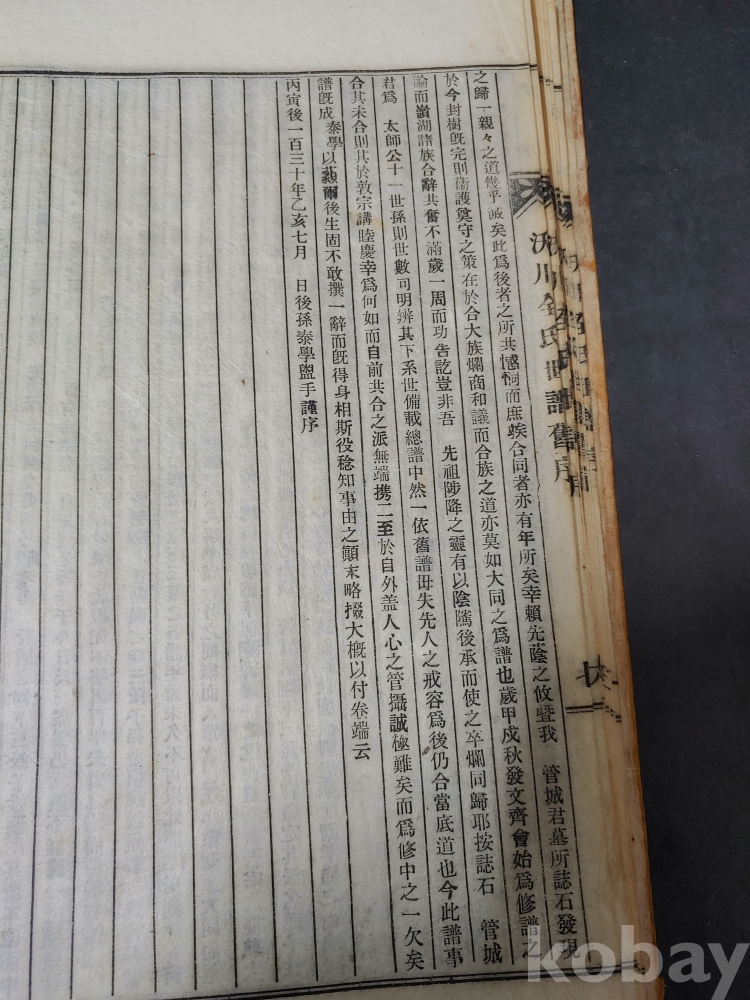 沃川全氏世譜舊序
之歸一親々之道幾乎誠矣此爲後者之所共慽恫而庶欸合同者亦有年所矣幸賴先蔭之攸曁我 管城君墓所誌石發現
於今封樹旣完則衞護奠守之策在於合大族爛商和議而合族之道亦莫如大同之爲譜也歲甲戌秋發文齊會始爲修譜之
論而嶺湖諸族合辭共奮不滿歲一周而功告訖豈非吾 先祖陟降之靈有以陰隲後承而使之卒爛同歸耶按誌石 管城
君爲 太師公十一世孫則世數司明辨其下系世備載總譜中然一依舊譜毋失先人之戒容爲後仍合當底道也今此譜事
合其未合則其於敦宗講睦慶幸爲何如而自前共合之派無端携二至於自外盖人心之管攝誠極難矣而爲修中之一欠矣
譜旣成泰學以藐爾後生固不敢撰一辭而旣得身相斯役稔知事由之顚末略掇大槪以付卷端云
丙寅後一百三十年乙亥七月 日後孫泰學盥手謹序
kobay